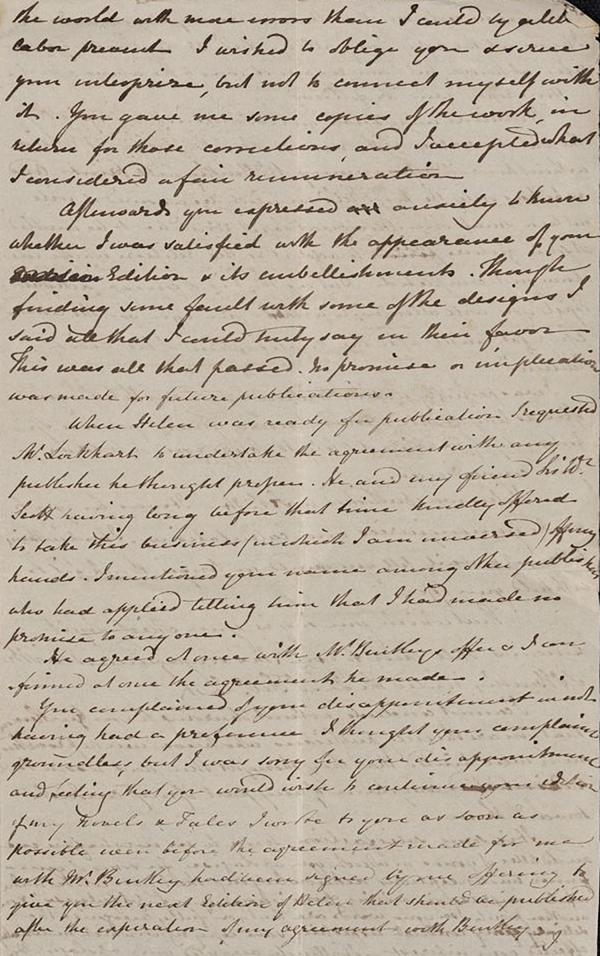 the world with more errors than I could by
labor prevent I wished to oblige you & serve
your enterprize, but not to connect myself with
it. You gave me some copies of the work, in
return for those corrections, and I accepted what
I considered a fair remuneration
Afterwards you expressed anxiety to know
whether I was satisfied with the appearance of your
Edition & its embellishments. Though
finding some fault with some of the designs I
said all that I could truly say in their favor
This was all that passed. No promise or implication
was made for future publications.
When Helen was ready for publication I requested
Mr. Lockhart to undertake the agreement with any
publisher he thought proper. He and my friend Sir Wr.
Scott having long before that time kindly offered
to take this business (in which I am unversed) off my
hands. I mentioned your name among other publishers
who had applied telling him that I had made no
promise to any one.
He agreed at once with Mr. Bentley's offer & I con
firmed at once the agreement he made.
You complained of your disappointment in not
having had a preference. I thought your complaint
groundless, but I was sorry for your disappointment
and feeling that you would wish to continue your edition
of my Novels & Tales I wrote to you as soon as
possible even before the agreement made for me
with Mr. Bentley had been signed by me offering to
give you the next Edition of Helen that should be published
after the expiration of my agreement with Bentley